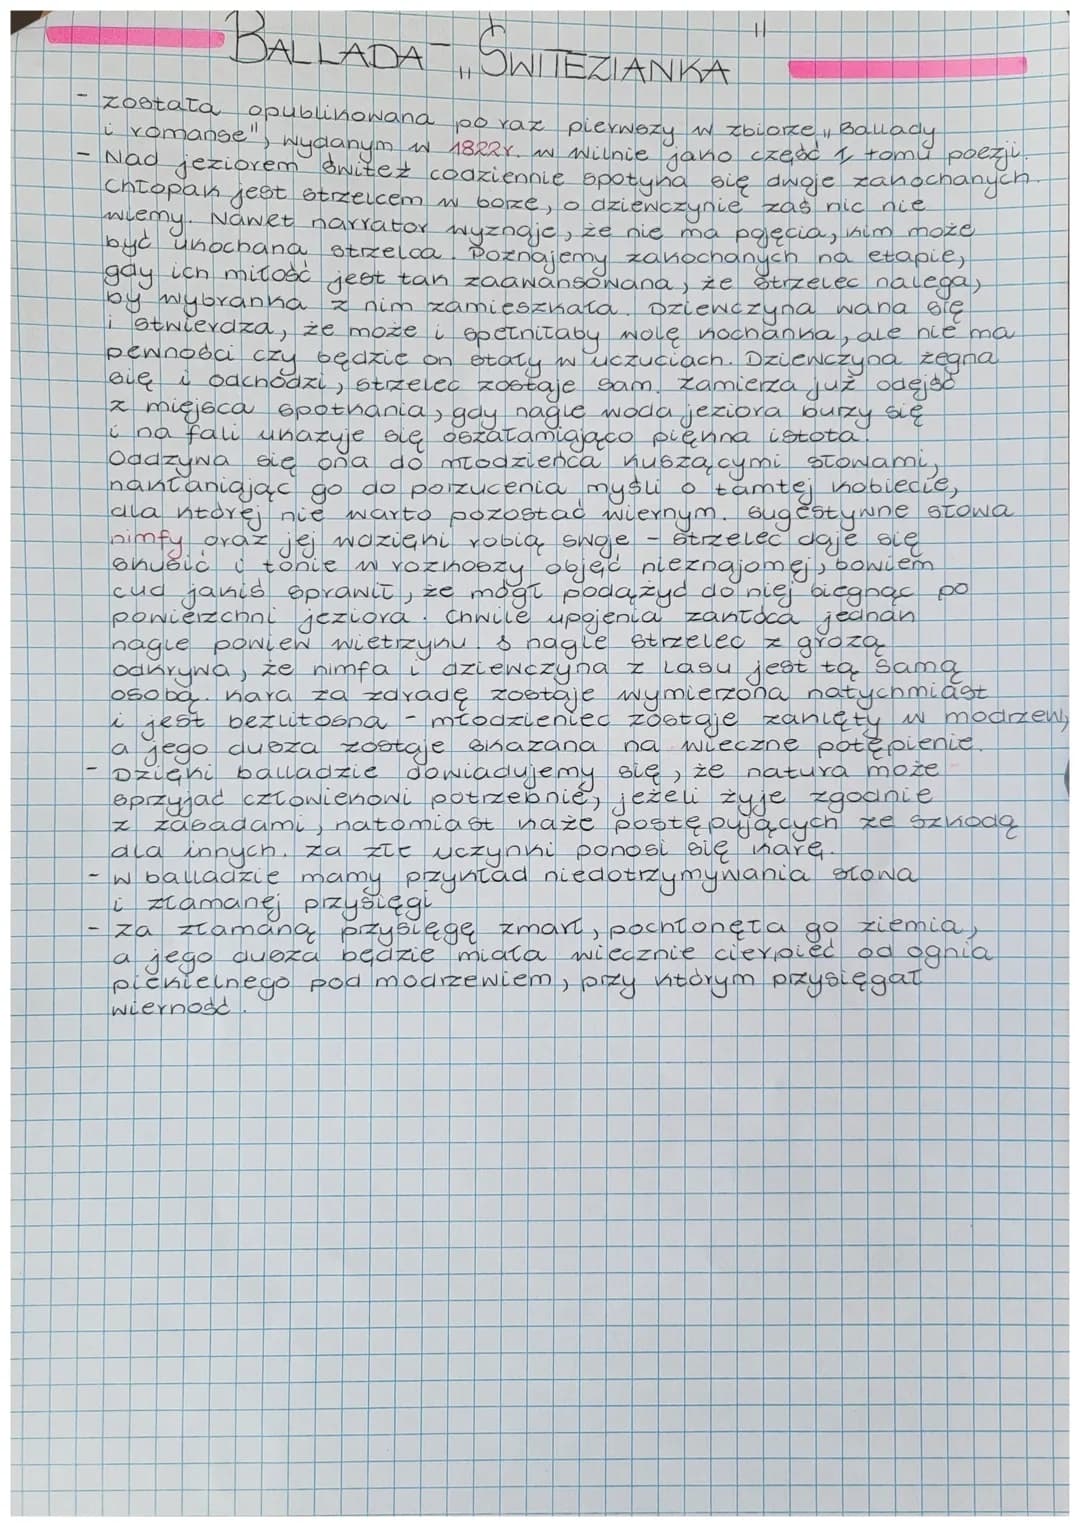 BALLADA - „ŚWITEZIANKA"
- została opublikowana po raz pierwszy w zbiorze „Ballady
i romanse", wydanym w 1822r. w Wilnie jako część 1 tomu poezji.
- Nad jeziorem Świteź codziennie spotyka się dwoje zakochanych.
Chłopak jest strzelcem w borze, o dziewczynie zaś nic nie
wiemy. Nawet narrator wyznaje, że nie ma pojęcia, kim może
być ukochana strzelca. Poznajemy zakochanych na etapie,
gdy ich miłość jest tak zaawansowana, że strzelec nalega,
by wybranka z nim zamieszkała. Dziewczyna waha się
i stwierdza, że może i spełniłaby wolę kochanka, ale nie ma
pewności czy będzie on stały w uczuciach. Dziewczyna żegna
się i odchodzi, strzelec zostaje sam. Zamierza już odejść
z miejsca spotkania, gdy nagle woda jeziora burzy się
i na fali ukazuje się oszałamiająco piękna istota.
Odzywa się ona do młodzieńca kuszącymi słowami,
nakłaniając go do porzucenia myśli o tamtej kobiecie,
dla której nie warto pozostać wiernym. Sugestywne słowa
nimfy oraz jej wdzięki robią swoje - strzelec daje się
skusić i tonie w rozkoszy objęć nieznajomej, bowiem
cud jakiś sprawił, że mógł podążyć do niej biegnąc po
powierzchni jeziora. Chwile upojenia zakłóca jednak
nagle powiew wietrzyku. I nagle strzelec z grozą
odkrywa, że nimfa i dziewczyna z lasu jest tą samą
osobą. Kara za zdradę zostaje wymierzona natychmiast
i jest bezlitosna - młodzieniec zostaje zaklęty w modrzew,
a jego dusza zostaje skazana na wieczne potępienie.
- Dzięki balladzie dowiadujemy się, że natura może
sprzyjać człowiekowi potrzebnie, jeżeli żyje zgodnie
z zasadami, natomiast każe postępujących ze szkodą
dla innych. Za złe uczynki ponosi się karę.
- w balladzie mamy przykład niedotrzymywania słowa
i złamanej przysięgi
- za złamaną przysięgę zmarł, pochłonęła go ziemia,
a jego dusza będzie miała wiecznie cierpieć od ognia
piekielnego pod modrzewiem, przy którym przysięgał
wierność.